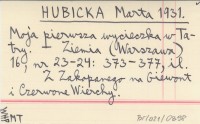 HUBICKA Marta 1931.
Moja pierwsza wycieczka w Ta-
try. Ziemia (Warszawa)
16, nr 23-24: 373-377, il.
Z Zakopanego na Giewont
i Czerwone Wierchy.
MT